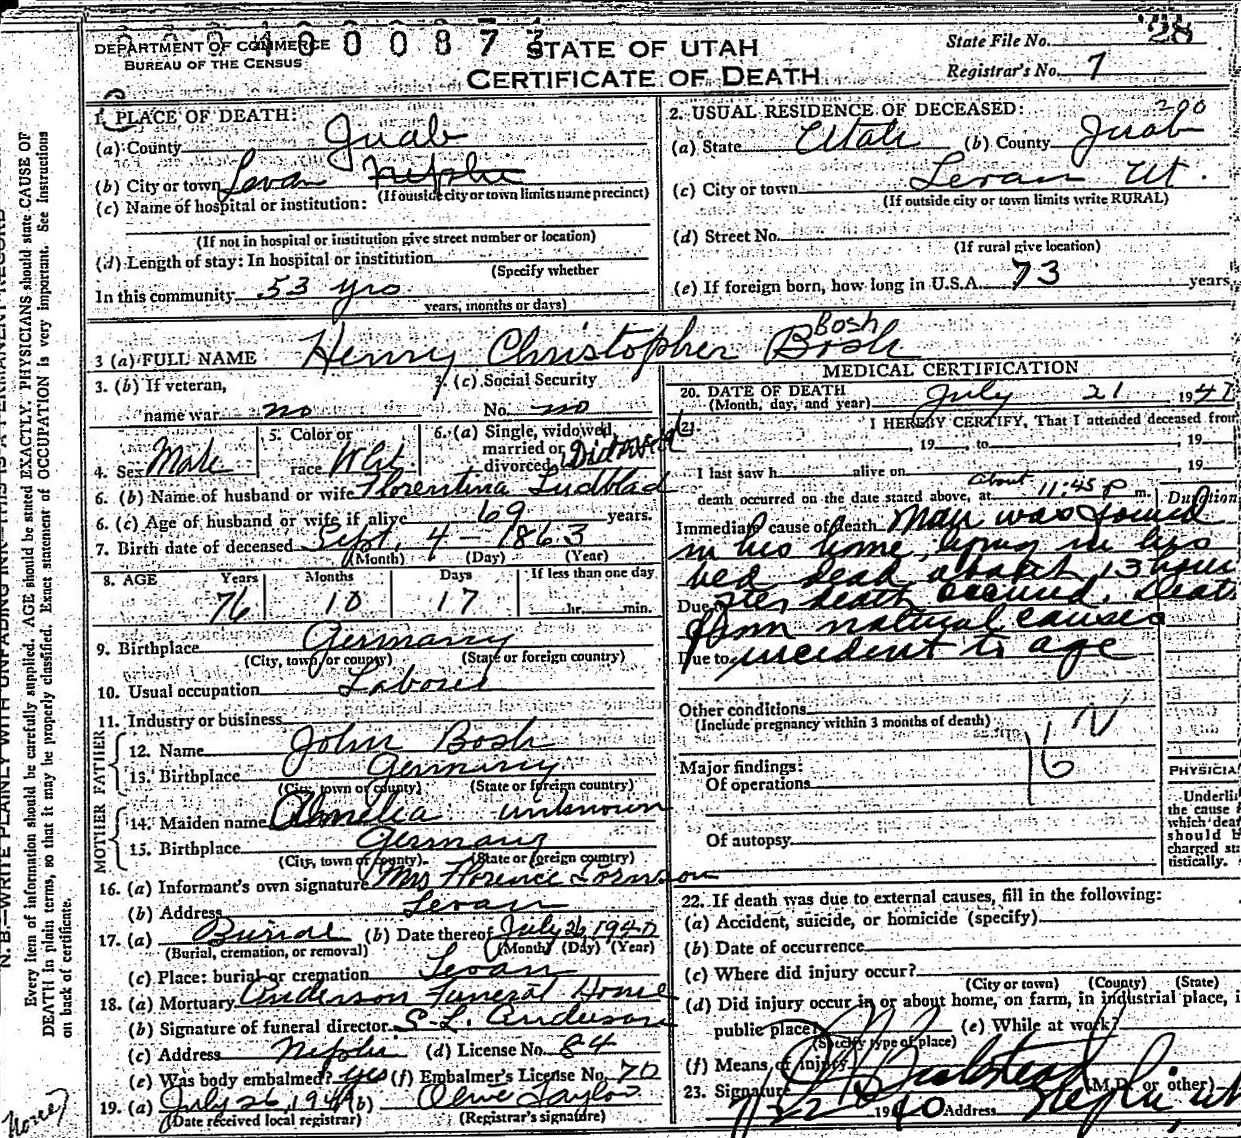 DEPARTMENT OF COMMERCE
BUREAU OF THE CENSUS
STATE OF UTAH
CERTIFICATE OF DEATH
State File No. 28
Registrar's No. 7
1. PLACE OF DEATH:
(a) County Juab
(b) City or town Levan Nephi
(If outside city or town limits name precinct)
(c) Name of hospital or institution:
(If not in hospital or institution give street number or location)
(d) Length of stay: In hospital or institution
(Specify whether
In this community 53 yrs
years, months or days)
2. USUAL RESIDENCE OF DECEASED: 290
(a) State Utah (b) County Juab
(c) City or town Levan Ut.
(If outside city or town limits write RURAL)
(d) Street No.
(If rural give location)
(e) If foreign born, how long in U.S.A. 73 years
Bosh
3 (a) FULL NAME Henry Christopher Bosh
3. (b) If veteran,
name war no
3. (c) Social Security
No. no
4. Sex Male
5. Color or
race Whit.
6. (a) Single, widowed,
married or
divorced Divorced
6. (b) Name of husband or wife Florentina Ludblad
6. (c) Age of husband or wife if alive 69 years.
7. Birth date of deceased Sept. 4 - 1863
(Month) (Day) (Year)
8. AGE Years Months Days If less than one day
76 10 17 hr. min.
9. Birthplace Germany
(City, town, or county) (State or foreign country)
10. Usual occupation Laborer
11. Industry or business
FATHER
12. Name John Bosh
13. Birthplace Germany
(City, town or county) (State or foreign country)
MOTHER
14. Maiden name Amelia unknown
15. Birthplace Germany
(City, town or county) (State or foreign country)
16. (a) Informant's own signature Mrs Florence
(b) Address Levan
17. (a) Burial (b) Date thereof July 26, 1940
(Burial, cremation, or removal) (Month) (Day) (Year)
(c) Place: burial or cremation Levan
18. (a) Mortuary Anderson Funeral Home
(b) Signature of funeral director S. L. Anderson
(c) Address Nephi (d) License No. 84
(e) Was body embalmed? yes (f) Embalmer's License No. 70
19. (a) July 26, 1940 (b) Olive Taylor
(Date received local registrar) (Registrar's signature)
MEDICAL CERTIFICATION
20. DATE OF DEATH July 21 194
(Month, day, and year)
21. I HEREBY CERTIFY, That I attended deceased from
, 19 , to , 19
I last saw h alive on , 19
death occurred on the date stated above, at About 11:45 P m. Duration
Immediate cause of death Man was found
in his home, lying in his
bed dead about 13 hours
Due to after death occured. Death
from natural causes
Due to incident to age
Other conditions
(Include pregnancy within 3 months of death)
Major findings:
Of operations
16
Of autopsy
PHYSICIA
Underli
the cause
which dea
should b
charged sta
tistically.
22. If death was due to external causes, fill in the following:
(a) Accident, suicide, or homicide (specify)
(b) Date of occurrence
(c) Where did injury occur?
(City or town) (County) (State)
(d) Did injury occur in or about home, on farm, in industrial place, i
public place? (e) While at work?
(Specify type of place)
(f) Means of injury
23. Signature (M.D. or other)
7/22 1940 Address Nephi Ut
N. B.—WRITE PLAINLY WITH UNFADING INK—THIS IS A PERMANENT RECORD
Every item of information should be carefully supplied. AGE should be stated EXACTLY. PHYSICIANS should state CAUSE OF
DEATH in plain terms, so that it may be properly classified. Exact statement of OCCUPATION is very important. See Instructions
on back of certificate.